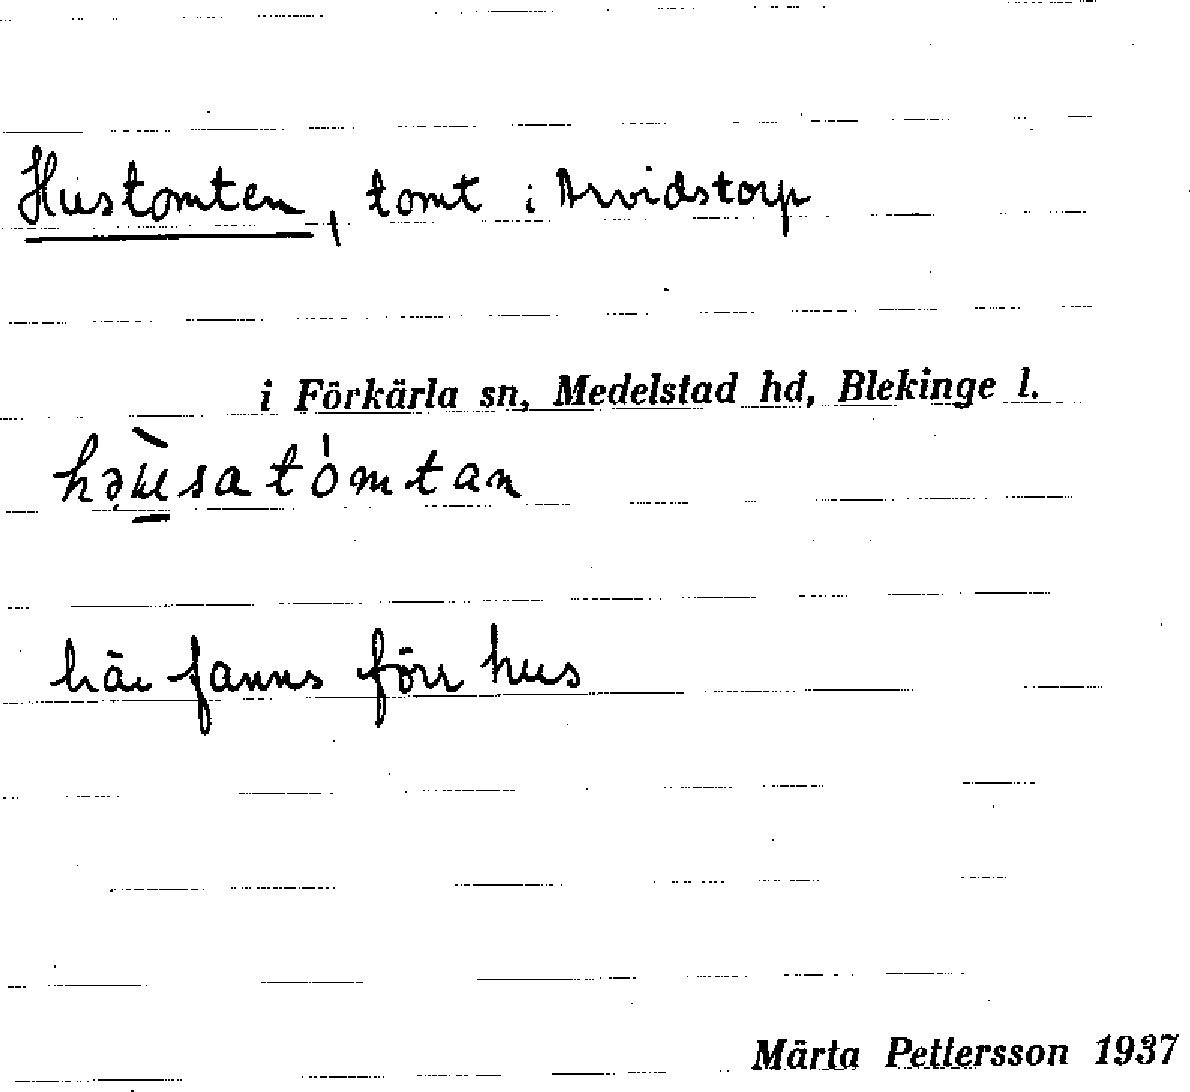 Hustomten, tomt i Arvidstorp
i Förkärla sn, Medelstad hd, Blekinge l.
här fanns förr hus
Märta Pettersson 1937